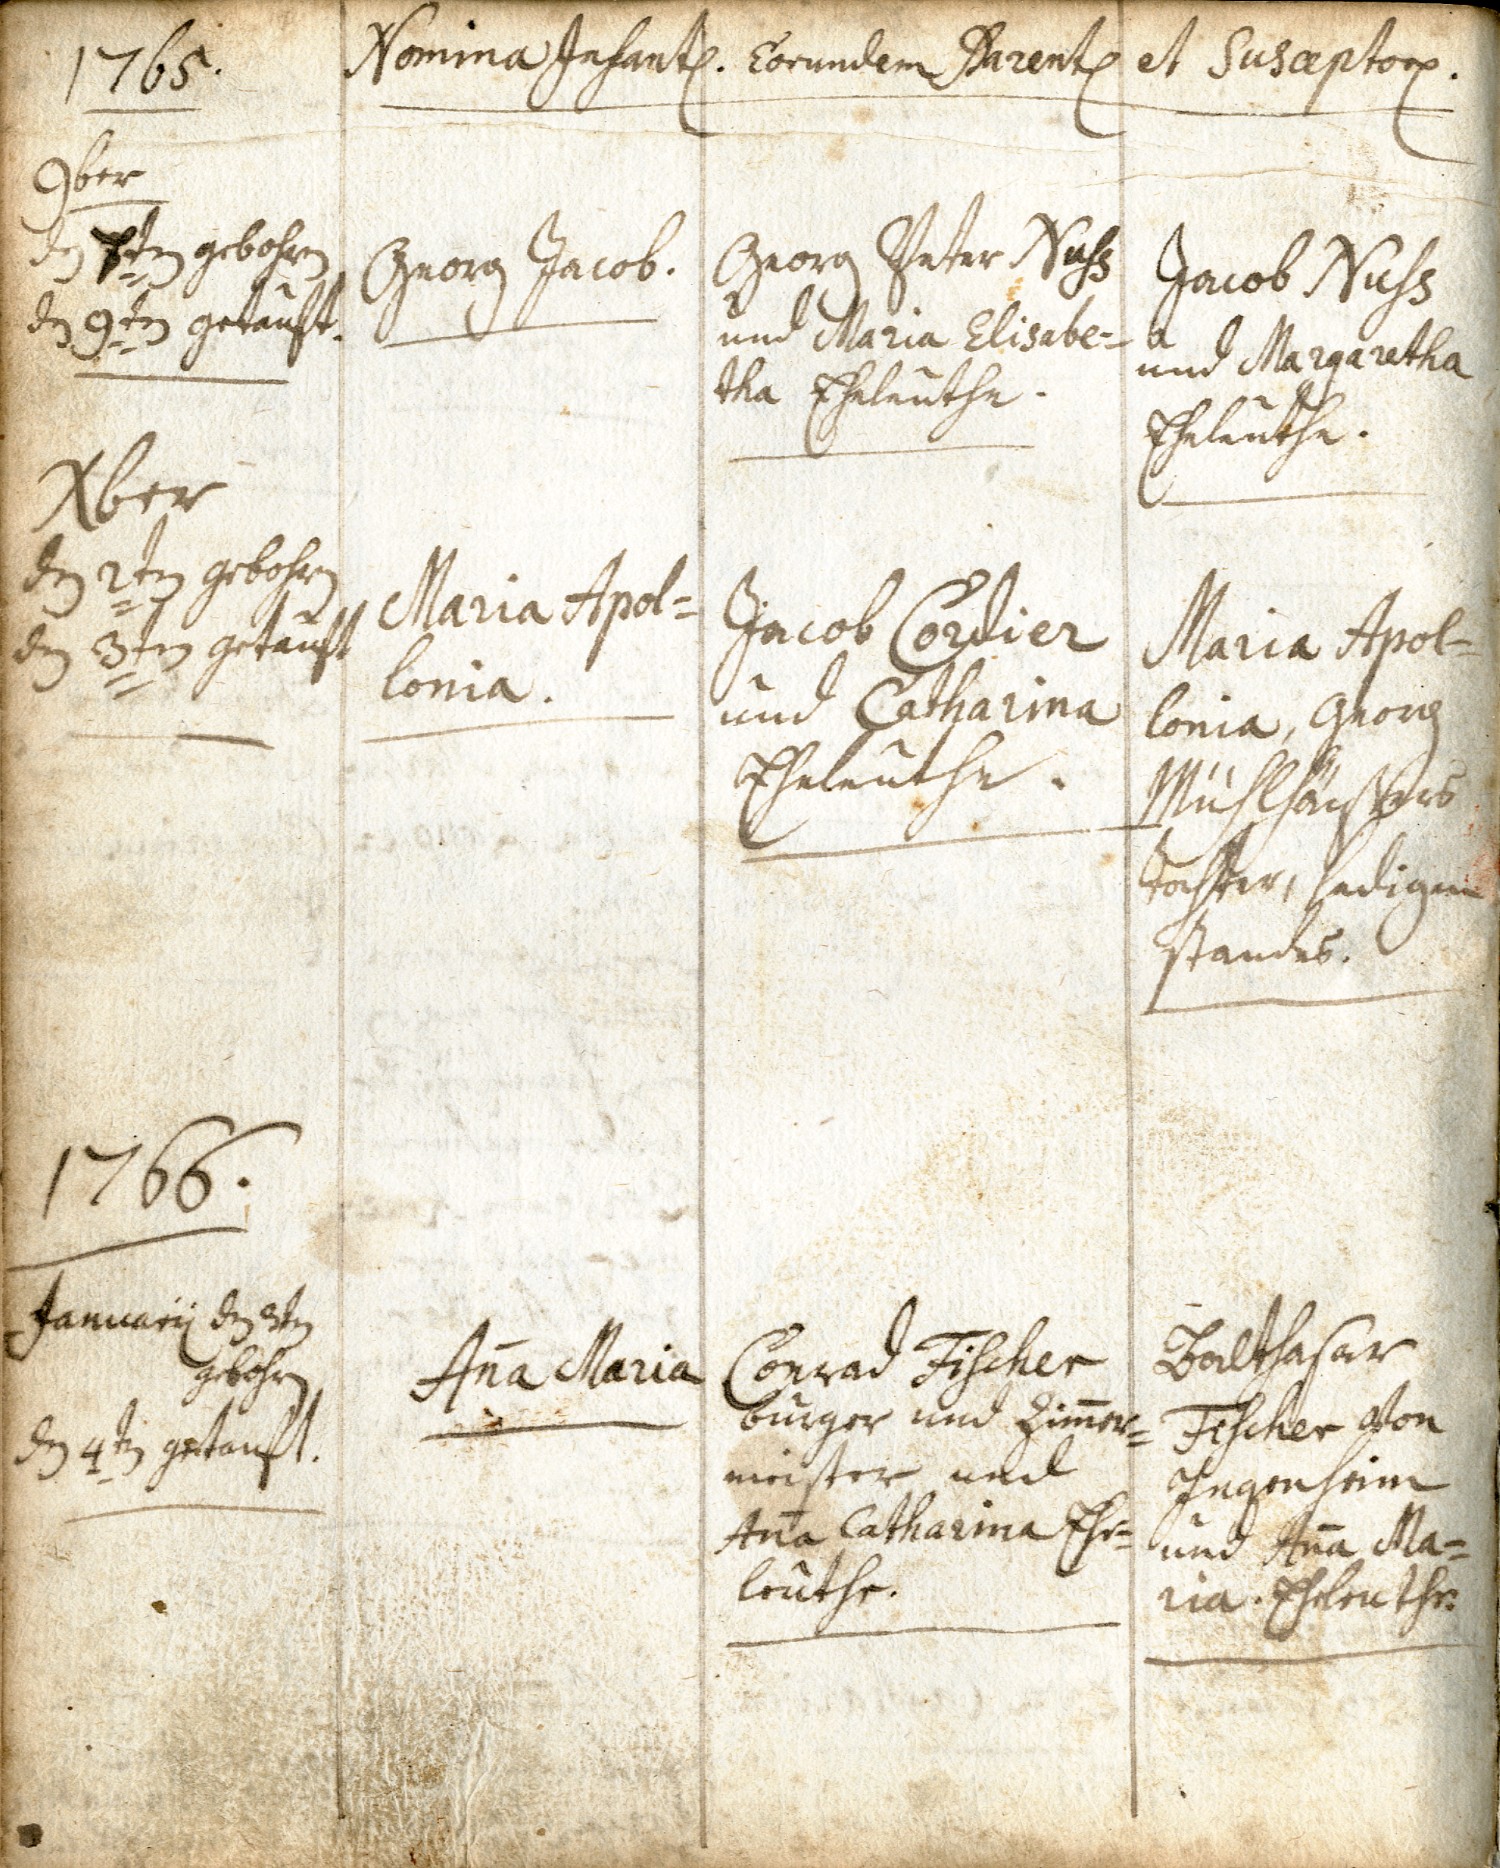 1765.
Nomina Infant. Eorundem Parent et Susceptor.
9ber
den 7ten gebohren
den 9ten getauft.
Georg Jacob.
Georg Peter Nuss
und Maria Elisabe=
tha Eheleuthe.
Jacob Nuss
und Margaretha
Eheleuthe.
Xber
den 2ten gebohren
den 3ten getauft
Maria Apol=
lonia.
Jacob Cordier
und Catharina
Eheleuthe.
Maria Apol=
lonia, Georg
Mühlhäußers
tochter, ledigen
standes.
1766.
Januarij den 3ten
gebohren
den 4ten getauft.
Ana Maria
Conrad Fischer
burger und Zimer=
meister und
Ana Catharina Ehe=
leuthe.
Balthasar
Fischer von
Ingenheim
und Ana Ma=
ria. Eheleuthe.